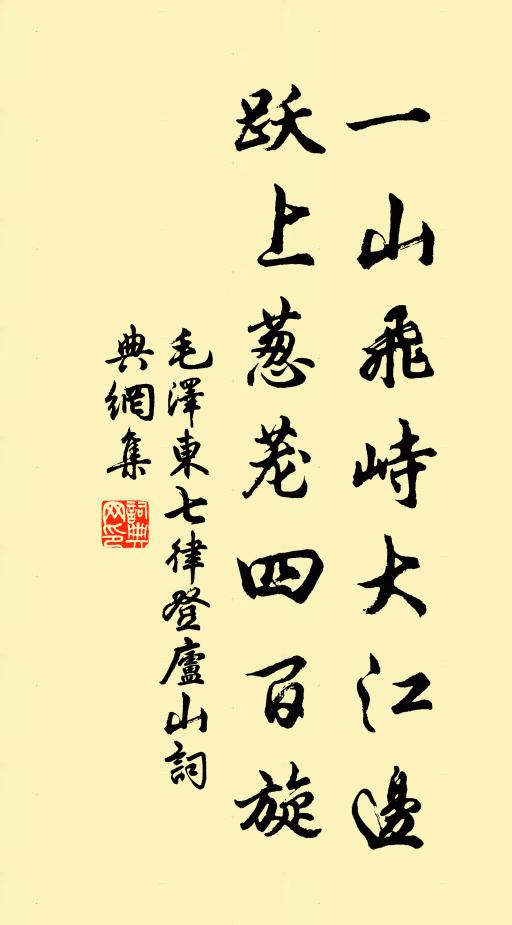 一山飛峙大江邊
跃上葱茏四百旋
毛澤東七律登廬山詞
典網集
詞典
网印